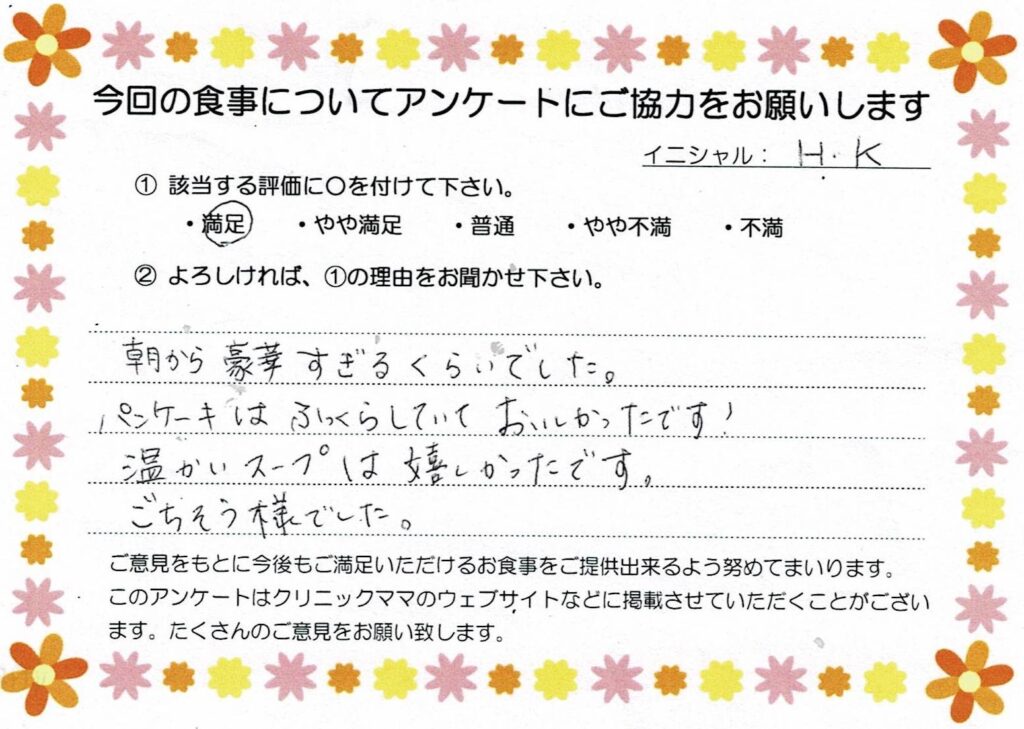 今回の食事についてアンケートにご協力をお願いします
イニシャル： H.K
① 該当する評価に〇を付けて下さい。
・満足 ・やや満足 ・普通 ・やや不満 ・不満
② よろしければ、①の理由をお聞かせ下さい。
朝から豪華すぎるくらいでした。
パンケーキはふっくらしていておいしかったです！
温かいスープは嬉しかったです。
ごちそう様でした。
ご意見をもとに今後もご満足いただけるお食事をご提供出来るよう努めてまいります。
このアンケートはクリニックママのウェブサイトなどに掲載させていただくことがござい
ます。たくさんのご意見をお願い致します。